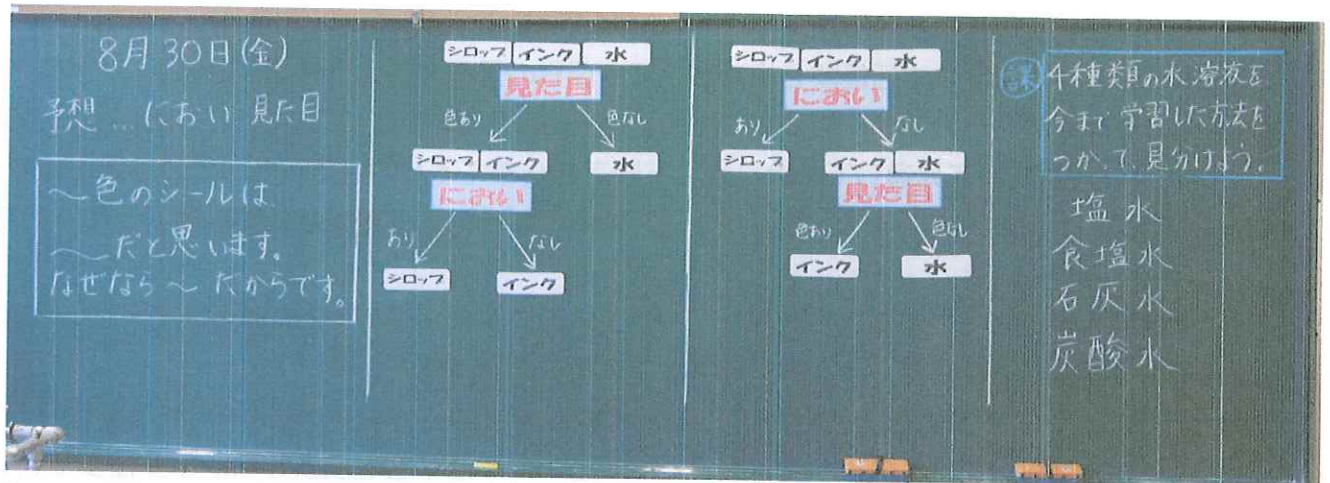 8月30日(金)
予想…におい 見た目
〜色のシールは
〜だと思います。
なぜなら〜だからです。
シロップ インク 水
見た目
色あり 色なし
シロップ インク 水
におい
あり なし
シロップ インク
シロップ インク 水
におい
あり なし
シロップ インク 水
見た目
色あり 色なし
インク 水
課 4種類の水溶液を
今まで学習した方法を
つかって、見分けよう。
塩水
食塩水
石灰水
炭酸水